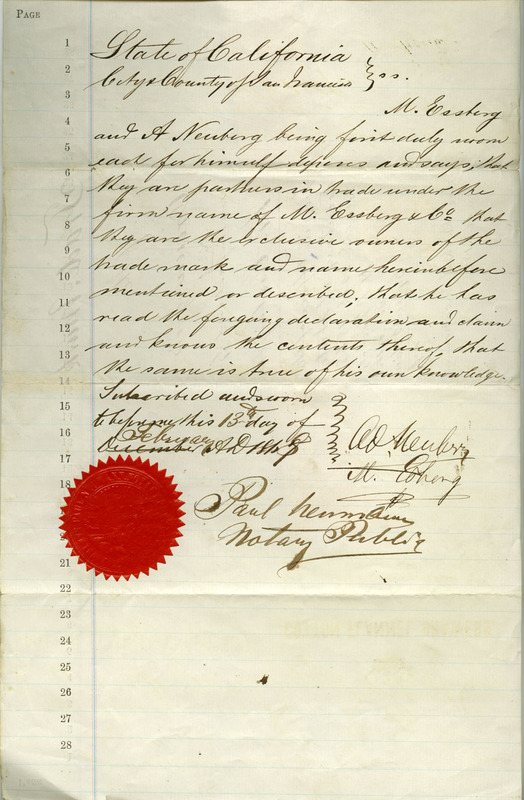 PAGE
1 State of California
2 City & County of San Francisco } ss.
3 M. Essberg
4 and A Neuberg being first duly sworn
5 each for himself deposes and says; that
6 they are partners in trade under the
7 firm name of M. Essberg & Co. that
8 they are the exclusive owners of the
9 trade mark and name hereinbefore
10 mentioned or described, that he has
11 read the foregoing declaration and claim
12 and knows the contents thereof, that
13 the same is true of his own knowledge.
14 Subscribed and sworn
15 to before me this 13th day of
16 February
17 December A.D.
Ad. Neuberg
18 M. Essberg
Paul Neumann
Notary Public
21
22
23
24
25
26
27
28